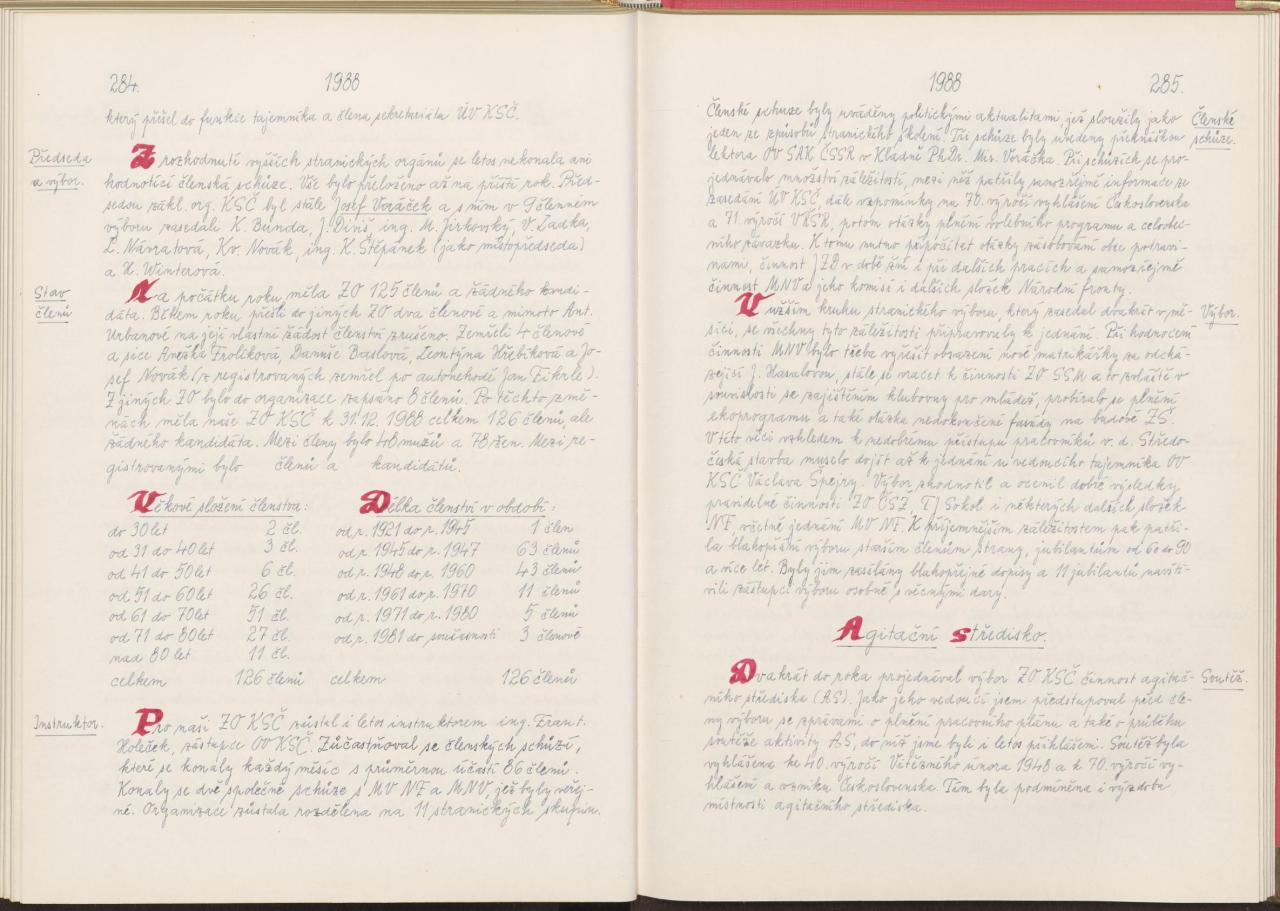 284.
1988
který přišel do funkce tajemníka a člena sekretariátu ÚV KSČ.
Předseda
a výbor.
Z rozhodnutí vyšších stranických orgánů se letos nekonala ani
hodnotící členská schůze. Vše bylo přeloženo až na příští rok. Před-
sedou zákl. org. KSČ byl stále Josef Voráček a s ním v 9členném
výboru zasedali K. Bunda, J. Diniš, ing. M. Jirkovský, V. Ladka,
L. Návratová, Kv. Novák, ing. K. Štěpánek (jako místopředseda)
a H. Winterová.
Stav
členů
Na počátku roku měla ZO 125 členů a žádného kandi-
dáta. Během roku přešli do jiných ZO dva členové a mimoto Ant.
Urbanové na její vlastní žádost členství zrušeno. Zemřeli 4 členové
a sice Anežka Frolíková, Danuše Baslová, Leontýna Hřebíková a Jo-
sef Novák (z registrovaných zemřel po autonehodě Jan Fikrle).
Z jiných ZO bylo do organizace zapsáno 8 členů. Po těchto změ-
nách měla naše ZO KSČ k 31.12.1988 celkem 126 členů, ale
žádného kandidáta. Mezi členy bylo 48 mužů a 78 žen. Mezi re-
gistrovanými bylo členů a kandidátů.
Věkové složení členstva:
do 30 let 2 čl.
od 31 do 40 let 3 čl.
od 41 do 50 let 6 čl.
od 51 do 60 let 26 čl.
od 61 do 70 let 51 čl.
od 71 do 80 let 27 čl.
nad 80 let 11 čl.
celkem 126 členů
Délka členství v období:
od r. 1921 do r. 1945 1 člen
od r. 1945 do r. 1947 63 členů
od r. 1948 do r. 1960 43 členů
od r. 1961 do r. 1970 11 členů
od r. 1971 do r. 1980 5 členů
od r. 1981 do současnosti 3 členové
celkem 126 členů
Instruktor.
Pro naši ZO KSČ zůstal i letos instruktorem ing. Frant.
Holeček, zástupce OV KSČ. Zúčastňoval se členských schůzí,
které se konaly každý měsíc s průměrnou účastí 86 členů.
Konaly se dvě společné schůze s MV NF a MNV, jež byly veřej-
né. Organizace zůstala rozdělena na 11 stranických skupin.
1988
285.
Členské schůze byly uváděny politickými aktualitami, jež sloužily jako
jeden ze způsobů stranického školení. Tři schůze byly uvedeny přednáškou
lektora OV SAK ČSSR v Kladně PhDr. Mir. Voráčka. Při schůzích se pro-
jednávalo množství záležitostí, mezi něž patřily samozřejmě informace ze
zasedání ÚV KSČ, dále vzpomínky na 70. výročí vyhlášení Československa
a 71. výročí VŘSR, potom otázky plnění volebního programu a celoobec-
ního závazku. K tomu nutno připočítat otázky zásobování obce potravi-
nami, činnost JZD v době žní i při dalších pracích a samozřejmě
činnost MNV a jeho komisí i dalších složek Národní fronty.
Členské
schůze.
V užším kruhu stranického výboru, který zasedal dvakrát v mě-
síci, se všechny tyto záležitosti připravovaly k jednání. Při hodnocení
činnosti MNV bylo třeba vyřešit obsazení nové matrikářky za odchá-
zející J. Hasalovou, stále se vracet k činnosti ZO SSM a to zvláště v
souvislosti se zajištěním klubovny pro mládež, probíralo se plnění
ekoprogramu a také otázka nedokončené fasády na budově ZŠ.
V této věci vzhledem k nedobrému přístupu pracovníků v. d. Středo-
česká stavba muselo dojít až k jednání u vedoucího tajemníka OV
KSČ Václava Špejry. Výbor zhodnotil a ocenil dobré výsledky
pravidelné činnosti ZO ČSŽ, TJ Sokol i některých dalších složek
NF, včetně jednání MV NF. K příjemnějším záležitostem pak patři-
la blahopřání výboru starším členům strany, jubilantům od 60 do 90
a více let. Byly jim zasílány blahopřejné dopisy a 11 jubilantů navští-
vili zástupci výboru osobně s věcnými dary.
Výbor.
Agitační středisko.
Dvakrát do roka projednával výbor ZO KSČ činnost agitač-
ního střediska (AS). Jako jeho vedoucí jsem předstupoval před čle-
ny výboru se zprávami o plnění pracovního plánu a také o průběhu
soutěže aktivity AS, do níž jsme byli i letos přihlášeni. Soutěž byla
vyhlášena ke 40. výročí Vítězného února 1948 a k 70. výročí vy-
hlášení a vzniku Československa. Tím byla podmíněna i výzdoba
místnosti agitačního střediska.
Soutěž.